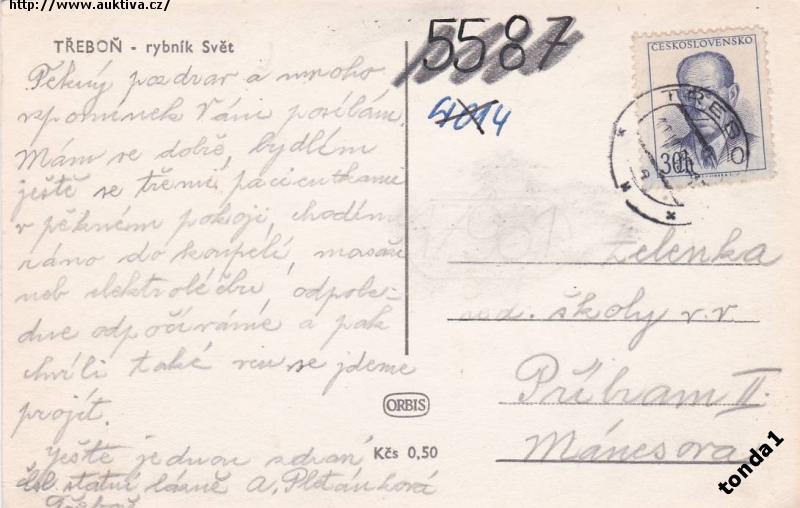 http://www.auktiva.cz/
TŘEBOŇ - rybník Svět
Pěkný pozdrav a mnoho
vzpomínek Vám posílám.
Mám se dobře, bydlím
ještě se třemi pacientkami
v pěkném pokoji, chodím
ráno do koupelí, masáží
neb elektroléčbu, odpole-
dne odpočíváme a pak
chvíli také ven se jdeme
projít.
Ještě jednou zdraví
A. Pletánková
čsl. státní lázně
Třeboň
5587
4014
ČESKOSLOVENSKO
30h
TŘEBO
Zelenka
řed. školy v. v.
Příbram II.
Mánesova
ORBIS
Kčs 0,50
tonda1